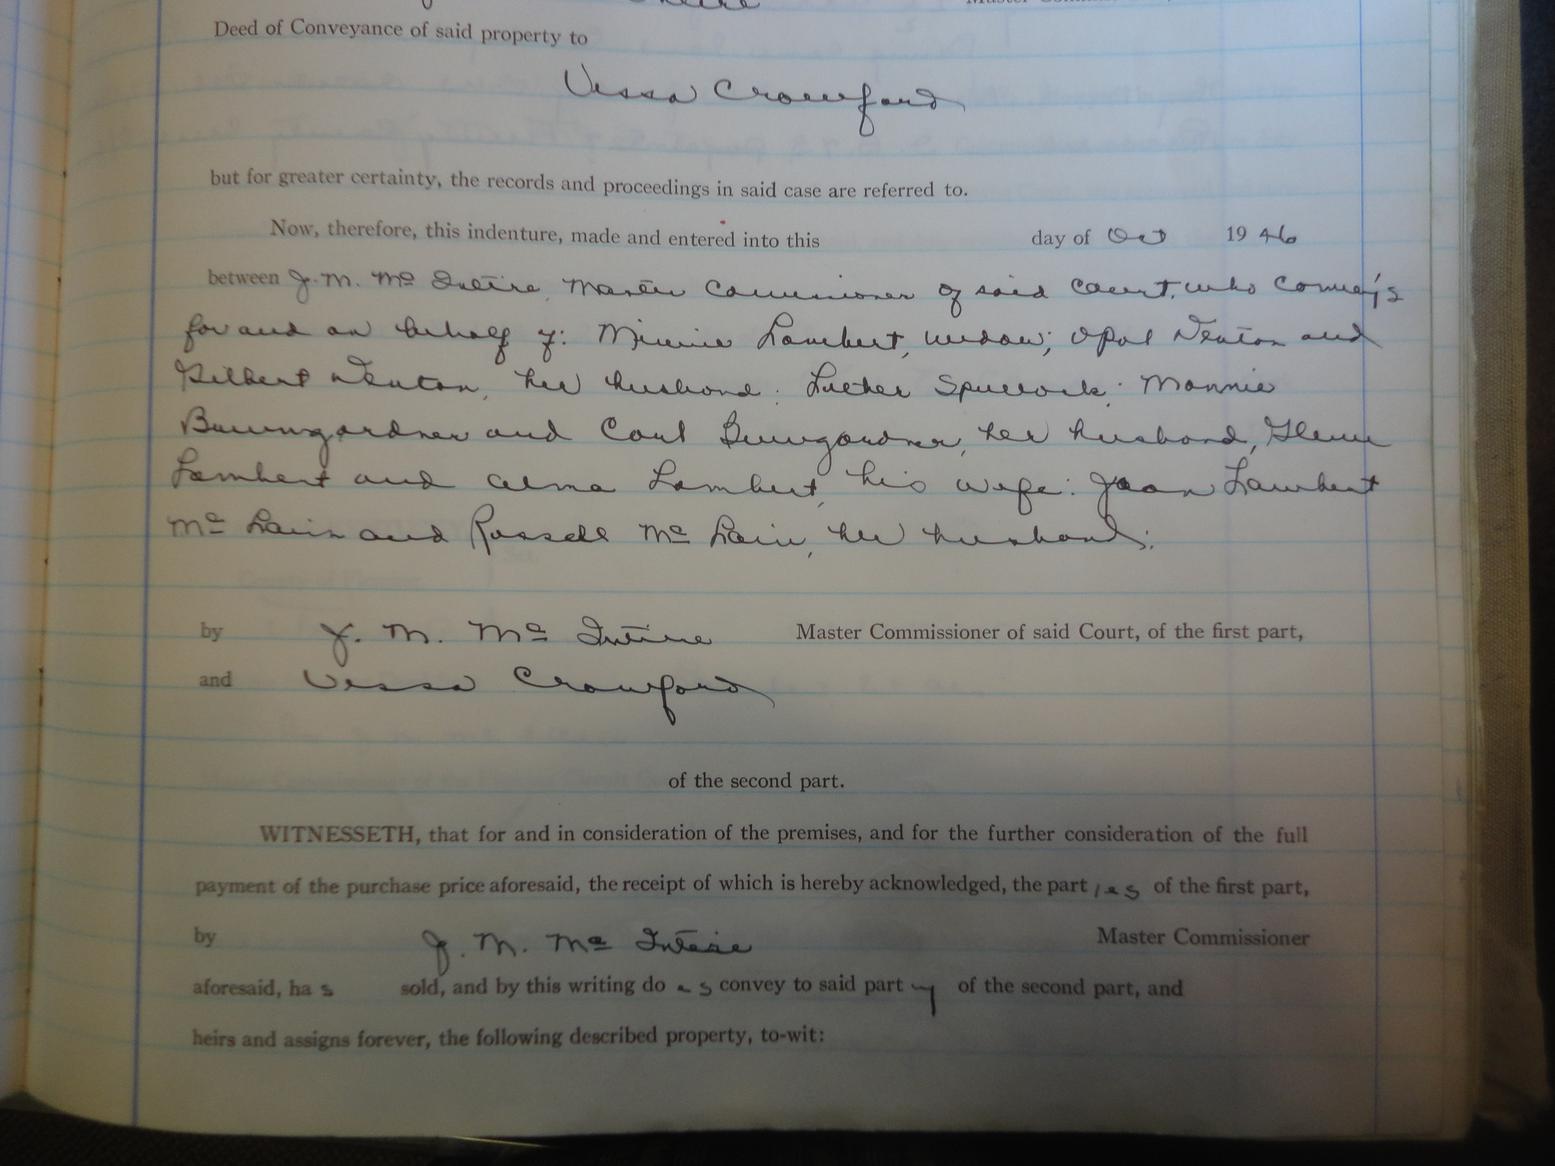 Deed of Conveyance of said property to
Vessa Crawford
but for greater certainty, the records and proceedings in said case are referred to.
Now, therefore, this indenture, made and entered into this day of Oct 1946
between J. M. Mc Intire, Master Commissioner of said Court, who Convey's
for and on behalf of: Minnie Lambert, widow; Opal Newton and
Gilbert Newton, her husband; Luther Spurlock; Mannie
Bumgardner and Carl Bumgardner, her husband, Glenn
Lambert and Alma Lambert, his wife; Joan Lambert
Mc Lain and Russell Mc Lain, her husband;
by J. M. Mc Intire Master Commissioner of said Court, of the first part,
and Vessa Crawford
of the second part.
WITNESSETH, that for and in consideration of the premises, and for the further consideration of the full
payment of the purchase price aforesaid, the receipt of which is hereby acknowledged, the part ies of the first part,
by J. M. Mc Intire Master Commissioner
aforesaid, ha s sold, and by this writing do es convey to said part y of the second part, and
heirs and assigns forever, the following described property, to-wit: